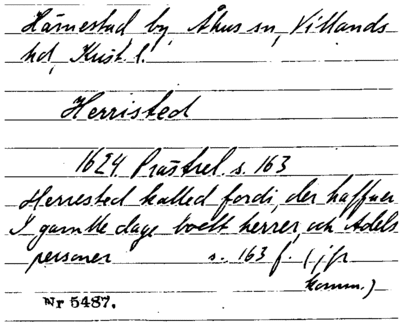 Härnestad by, Åhus sn, Villands
hd, Krist. l.
Herristed
1624 Prästrel. s. 163
Herrested kalled fordi, der haffuer
I gamble dage boett herrer och Adels
personer s. 163 f. (jfr
komm.)
Nr 5487.